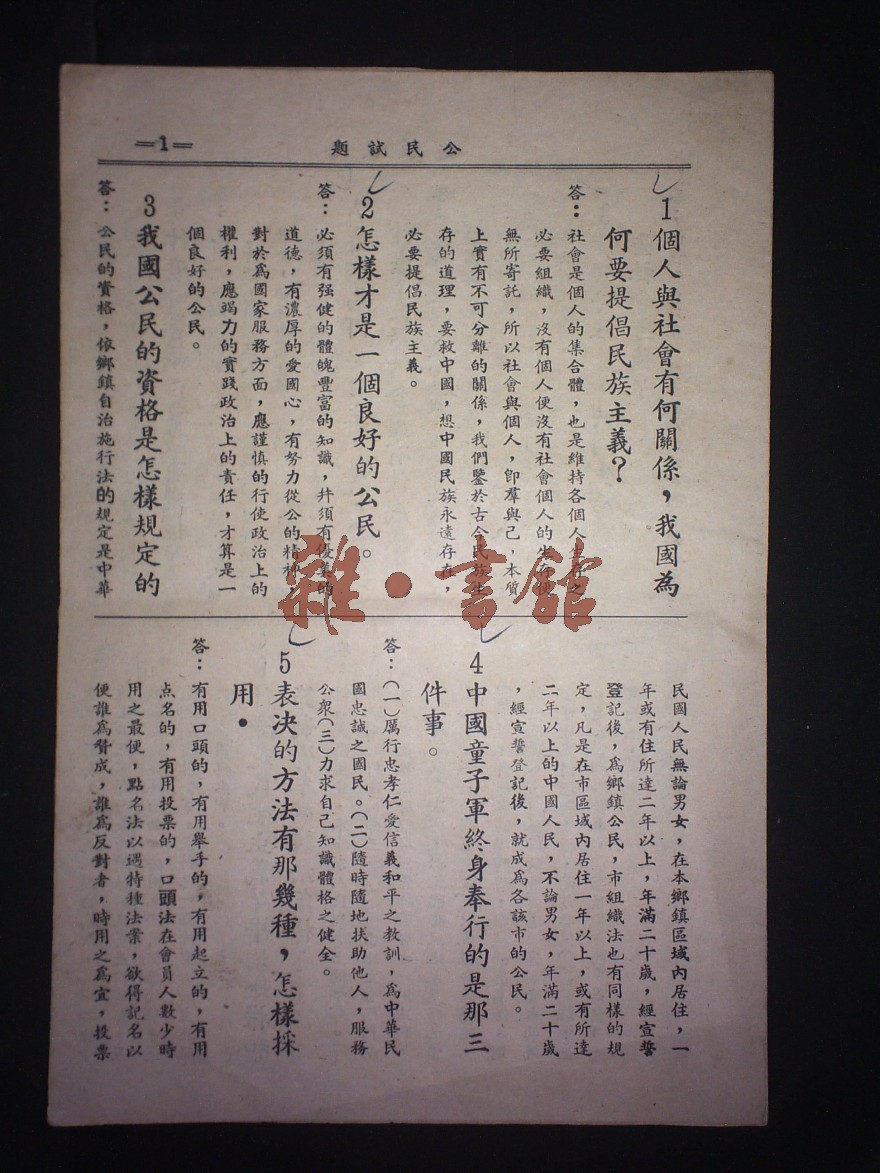 公民試題
=1=
1個人與社會有何關係，我國為
何要提倡民族主義？
答：社會是個人的集合體，也是維持各個人生存之
必要組織，沒有個人便沒有社會個人的生存便
無所寄託，所以社會與個人，卽羣與己，本質
上實有不可分離的關係，我們鑒於古今民族生
存的道理，要救中國，想中國民族永遠存在，
必要提倡民族主義。
2怎樣才是一個良好的公民。
答：必須有强健的體魄豐富的知識，幷須有優美的
道德，有濃厚的愛國心，有努力從公的精神，
對於爲國家服務方面，應謹慎的行使政治上的
權利，應竭力的實踐政治上的責任，才算是一
個良好的公民。
3我國公民的資格是怎樣規定的
答：公民的資格，依鄉鎮自治施行法的規定是中華
民國人民無論男女，在本鄉鎮區域內居住，一
年或有住所達二年以上，年滿二十歲，經宣誓
登記後，爲鄉鎮公民，市組織法也有同樣的規
定，凡是在市區域內居住一年以上，或有所達
二年以上的中國人民，不論男女，年滿二十歲
，經宣誓登記後，就成爲各該市的公民。
4中國童子軍終身奉行的是那三
件事。
答：(一)厲行忠孝仁愛信義和平之教訓，爲中華民
國忠誠之國民。(二)隨時隨地扶助他人，服務
公衆(三)力求自己知識體格之健全。
5表决的方法有那幾種，怎樣採
用．
答：有用口頭的，有用舉手的，有用起立的，有用
点名的，有用投票的，口頭法在會員人數少時
用之最便，點名法以遇特種法案，欲得記名以
便誰爲贊成，誰爲反對者，時用之爲宜，投票
雜·書館